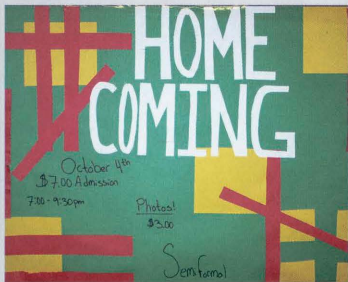 HOME
COMING
October 4th
$7.00 Admission
7:00 - 9:30pm
Photos!
$3.00
Semiformal